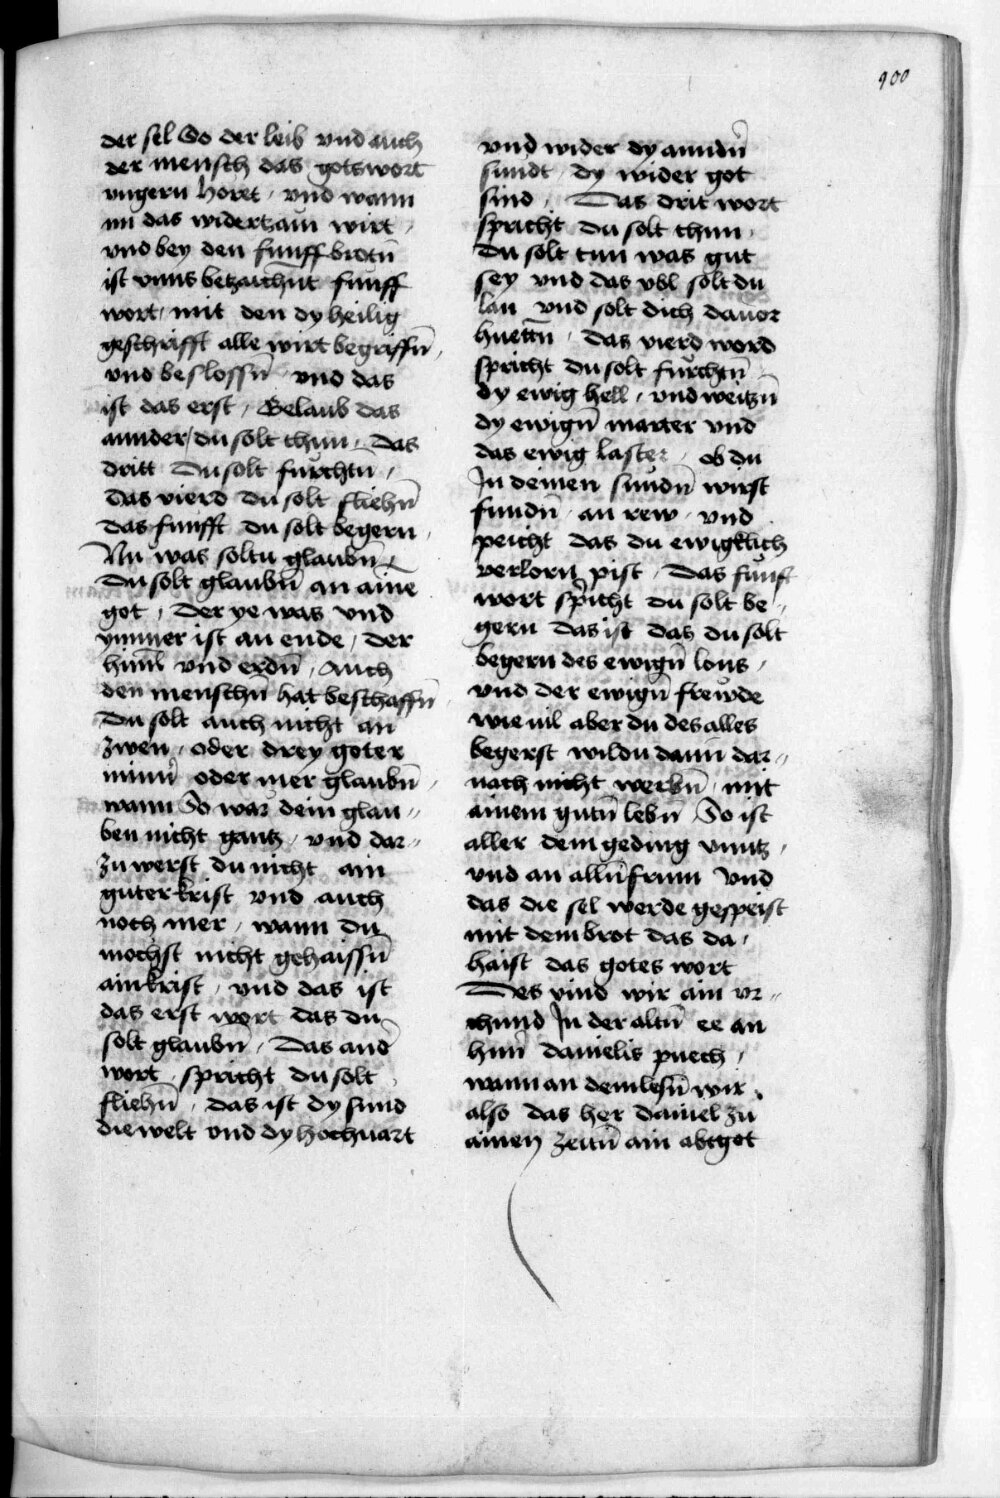 900
der sel So der leib vnd auch
der mensch das gotswort
vngern horet · vnd wann
im das widerzam wirt ·
vnd bey den funff brotn̄
ist vnns betzaichnt funff
wort · mit den dy heilig
geschrifft alle wirt begriffn̄ ·
vnd beslossn̄ vnd das
ist das erst · Gelaub das
annder / du solt thun · das
dritt Du solt furchtn̄ ·
das vierd du solt fliehn̄
das funfft du solt begern ·
Nu was soltu glaubn̄
Du solt glaubn̄ an aine
got · der ye was vnd
ymmer ist an ende · der
himl̄ vnd erdn̄ · Auch
den menschn̄ hat beschaffn̄
Du solt auch nicht an
zwen · oder drey goter
minn̄ oder mer glaubn̄ ·
wann So war dein glau„
ben nicht gantz · vnd dar„
zu werst du nicht ain
guter krist vnd auch
noch mer · wann du
mochst nicht gehaissn̄
ain krist · vnd das ist
das erst wort das du
solt glaubn̄ · Das and̄
wort · spricht du solt
fliehn̄ · das ist dy sund
die welt vnd dy hochuart
vnd wider dy anndn̄
sundt · dy wider got
sind · Das drit wort
spricht du solt thun ·
Du solt tun was gut
sey vnd das vbl solt du
lan vnd solt dich dauor
huettn̄ · das vierd word
spricht du solt furchtn̄
dy ewig hell · vnd weitzn̄
dy ewign̄ marter vnd
das ewig laster · ob du
In deinen sundn̄ wirst
fundn̄ · an rew · vnd
peicht das du ewigklich
verlorn pist · Das funft
wort spricht du solt be„
gern das ist das du solt
begern des ewign̄ lons ·
vnd der ewign̄ frewde
wie uil aber du des alles
begerst wildu dann dar„
nach nicht werbn̄ · mit
ainem gutn̄ lebn̄ So ist
aller dein geding vnutz ·
vnd an alln̄ frum vnd
das die sel werde gespeist
mit dem brot das da ·
haist das gotes wort
Des vind wir ain vr„
chund In der altn̄ ee an
hn̄n danielis puech ·
wann an dem lesn̄ wir ·
also das her daniel zu
ainen zeitn̄ ain abtgot